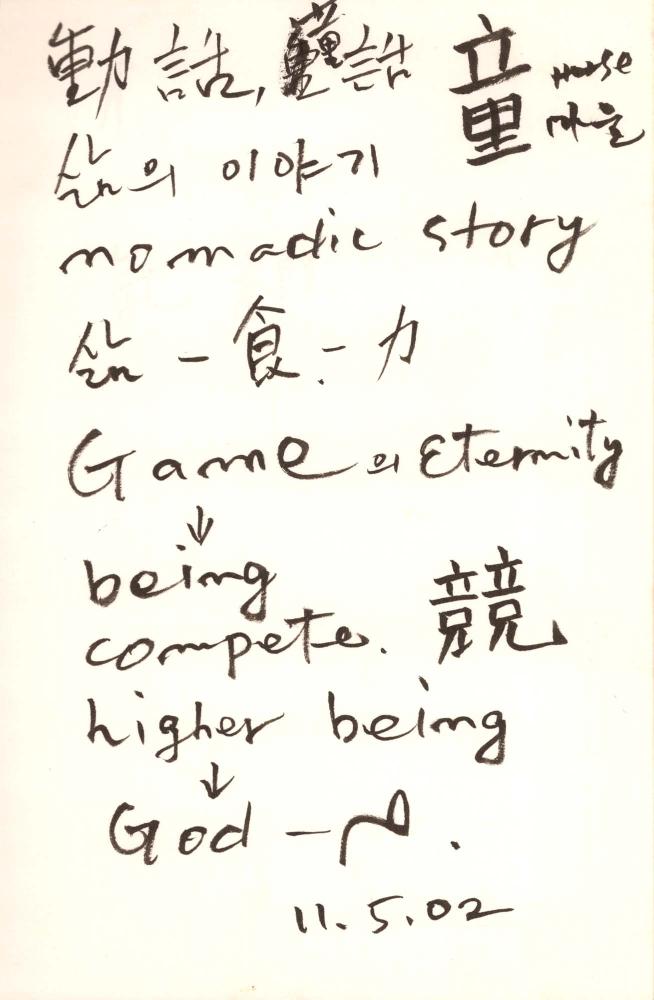 動話, 話 童 House
마을
삶의 이야기
nomadic story
삶 - 食 - 力
Game의 Eternity
↓
being
compete. 競
higher being
↓
God -
11.5.02